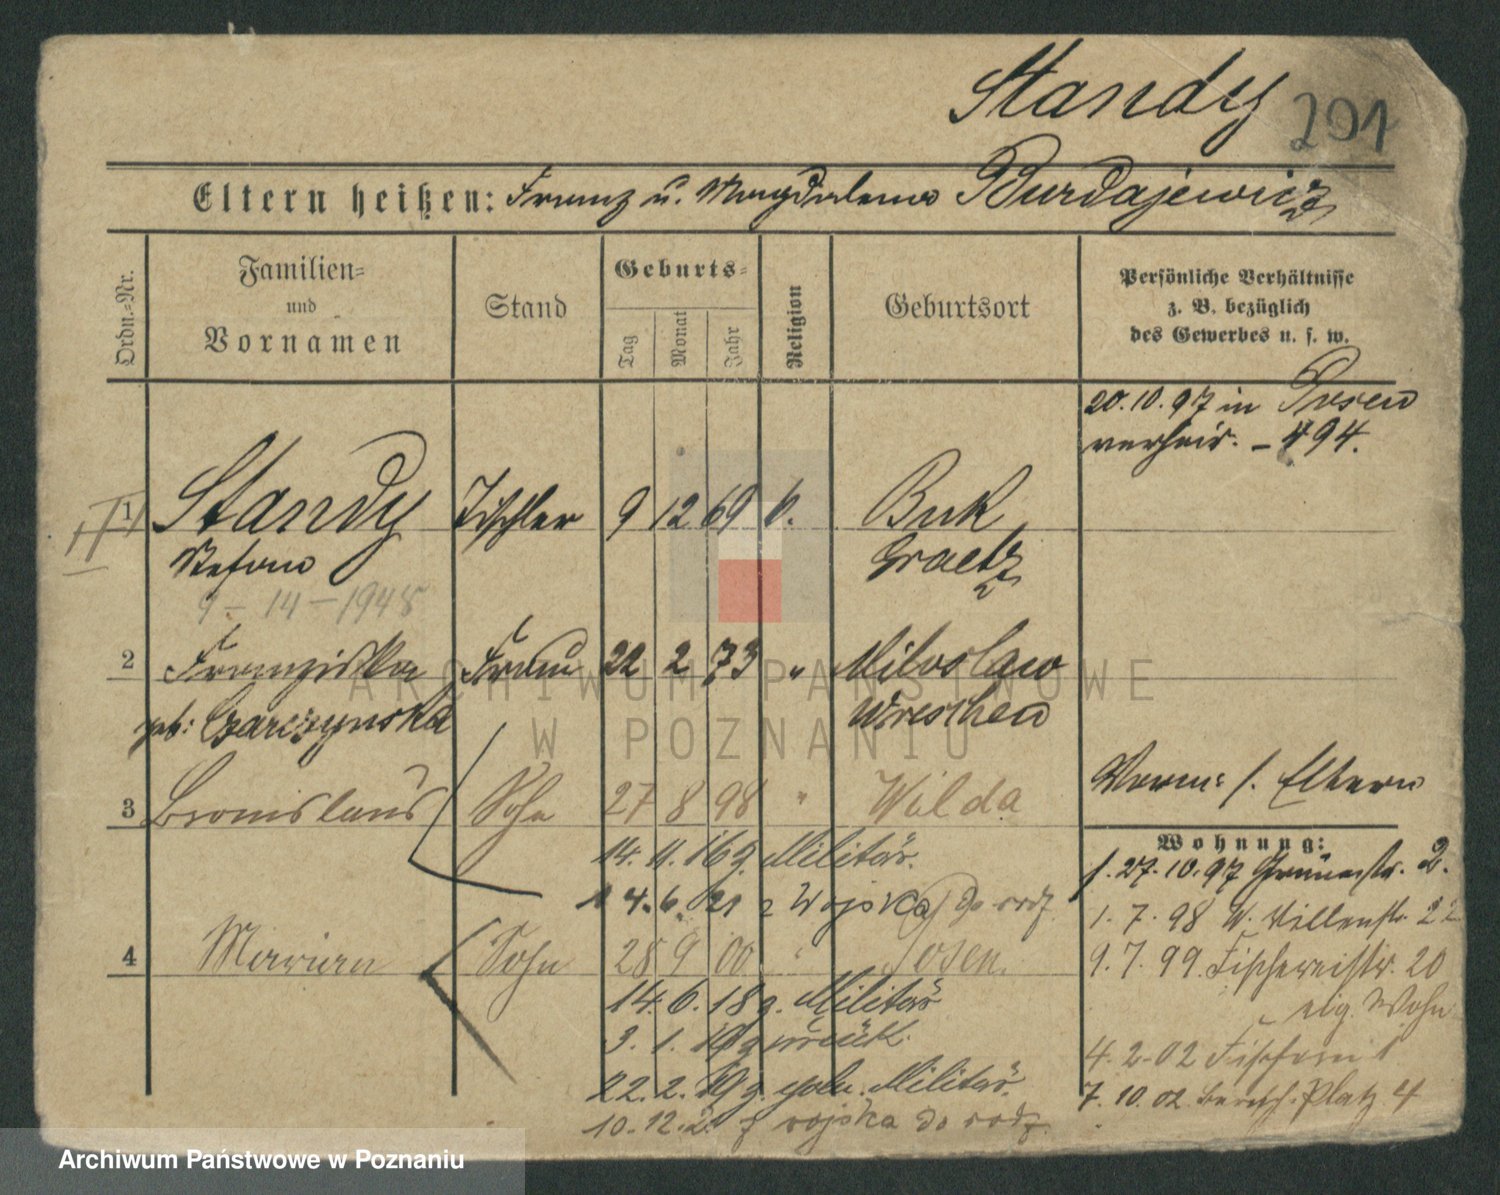 Standy 291
Eltern heißen: Franz u. Magdalena Burdajewicz
Ordn.=Nr.
Familien=
und
Vornamen
Stand
Geburts=
Tag
Monat
Jahr
Religion
Geburtsort
Persönliche Verhältnisse
z. B. bezüglich
des Gewerbes u. s. w.
20.10.97 in Posen
verheir. - 494.
1 Standy Tischler 9 12 69 k. Buk
Stefan Graetz
9 - 14 - 1948
2 Franziska Frau 22 2 73 " Miloslaw
geb: Czarczynska Wreschen
3 Bronislaus Sohn 27 8 98 " Wilda
Vorm: s. Eltern
Wohnung:
14. 11. 16 g. Militär.
14. 6. 21 z Wojska do rodz.
4 Marian Sohn 28 9 00 " Posen.
14. 6. 18 g. Militär
3. 1. 19 zurück.
22. 2. 19 g. poln. Militär.
10.12.2. z wojska do rodz.
f. 27.10.97 Grünestr. 2.
1. 7. 98 W. Villenstr. 22
9. 7. 99. Fischereistr. 20
eig. Wohn
4. 2. 02 Fischerei
7. 10. 02 Platz 4
ARCHIWUM PAŃSTWOWE
W POZNANIU
Archiwum Państwowe w Poznaniu